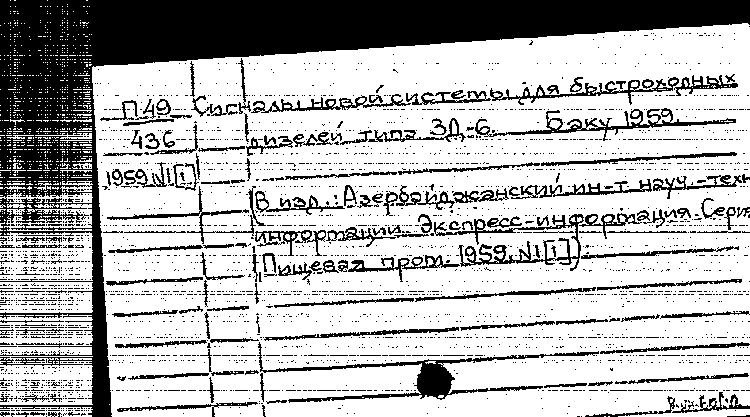 П49 Сигналы новой системы для быстроходных
436 дизелей типа 3Д-6. Баку, 1959.
1959.N1[1]
(В изд.: Азербайджанский ин-т науч.-техн
информации. Экспресс-информация. Серия
Пищевая пром. 1959, N1[1]).